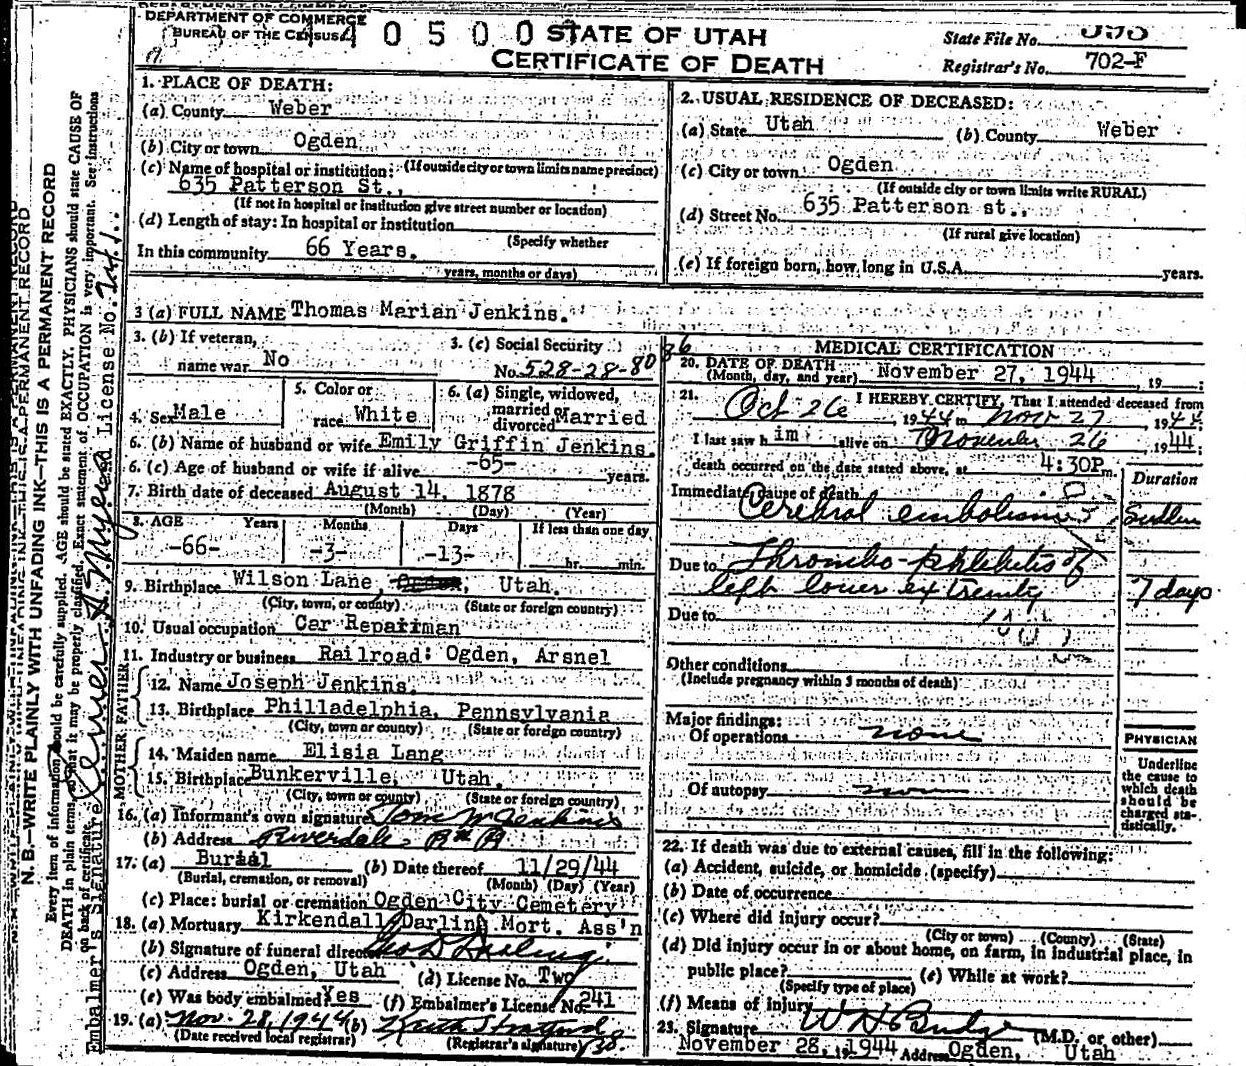 DEPARTMENT OF COMMERCE
BUREAU OF THE CENSUS
4 0 5 0 0 STATE OF UTAH
CERTIFICATE OF DEATH
State File No.
Registrar's No. 702-F
1. PLACE OF DEATH:
(a) County Weber
(b) City or town Ogden
(c) Name of hospital or institution: (If outside city or town limits name precinct)
635 Patterson St.,
(If not in hospital or institution give street number or location)
(d) Length of stay: In hospital or institution
(Specify whether
In this community 66 Years.
years, months or days)
2. USUAL RESIDENCE OF DECEASED:
(a) State Utah (b) County Weber
(c) City or town Ogden
(If outside city or town limits write RURAL)
(d) Street No. 635 Patterson st.,
(If rural give location)
(e) If foreign born, how long in U.S.A. years.
3 (a) FULL NAME Thomas Marian Jenkins.
3. (b) If veteran,
name war No
3. (c) Social Security
No. 528-28-8086
4. Sex Male
5. Color or
race White
6. (a) Single, widowed,
married or
divorced Married
6. (b) Name of husband or wife Emily Griffin Jenkins.
6. (c) Age of husband or wife if alive -65- years.
7. Birth date of deceased August 14, 1878
(Month) (Day) (Year)
8. AGE Years Months Days If less than one day
-66- -3- -13- hr. min.
9. Birthplace Wilson Lane, Utah.
(City, town, or county) (State or foreign country)
10. Usual occupation Car Repairman
11. Industry or business Railroad: Ogden, Arsnel
FATHER
12. Name Joseph Jenkins.
13. Birthplace Philladelphia, Pennsylvania
(City, town or county) (State or foreign country)
MOTHER
14. Maiden name Elisia Lang
15. Birthplace Bunkerville, Utah.
(City, town or county) (State or foreign country)
16. (a) Informant's own signature Tom M Jenkins
(b) Address Riverdale
17. (a) Burial (b) Date thereof 11/29/44
(Burial, cremation, or removal) (Month) (Day) (Year)
(c) Place: burial or cremation Ogden City Cemetery
18. (a) Mortuary Kirkendall Darling Mort. Ass'n
(b) Signature of funeral director Geo D Darling
(c) Address Ogden, Utah (d) License No. Two
(e) Was body embalmed? Yes (f) Embalmer's License No. 241
19. (a) Nov. 28, 1944 (b)
(Date received local registrar) (Registrar's signature)
MEDICAL CERTIFICATION
20. DATE OF DEATH
(Month, day, and year) November 27, 1944, 19
21. I HEREBY CERTIFY, That I attended deceased from
Oct 26 1944 to Nov 27 1944
I last saw him alive on November 26 1944
death occurred on the date stated above, at 4:30P m.
Immediate cause of death Duration
Cerebral embolism Sudden
Due to Thrombo-phlebitis of
left lower extremity 7 days
Due to
Other conditions
(Include pregnancy within 3 months of death)
Major findings:
Of operations none
Of autopsy none
PHYSICIAN
Underline
the cause to
which death
should be
charged sta-
tistically.
22. If death was due to external causes, fill in the following:
(a) Accident, suicide, or homicide (specify)
(b) Date of occurrence
(c) Where did injury occur?
(City or town) (County) (State)
(d) Did injury occur in or about home, on farm, in industrial place, in
public place? (e) While at work?
(Specify type of place)
(f) Means of injury
23. Signature W H Budge (M.D. or other)
November 28, 1944 Address Ogden, Utah
N. B.—WRITE PLAINLY WITH UNFADING INK—THIS IS A PERMANENT RECORD
Every item of information should be carefully supplied. AGE should be stated EXACTLY. PHYSICIANS should state CAUSE OF
DEATH in plain terms, so that it may be properly classified. Exact statement of OCCUPATION is very important. See instructions
on back of certificate.
Embalmer's Signature License No. 241.